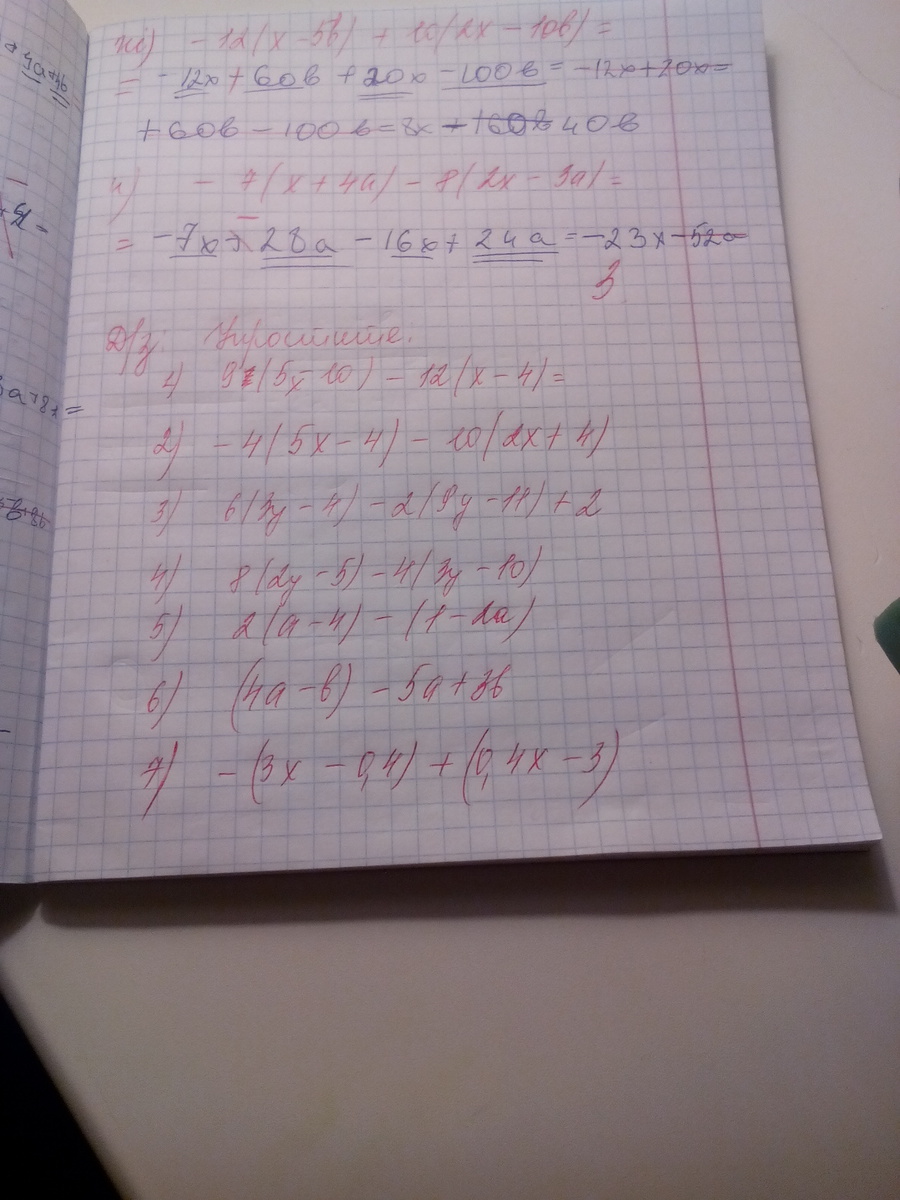 ж) - 12(x - 5b) + 10(2x - 10b) =
= -12x + 60b + 20x - 100b = -12x + 20x =
+ 60b - 100b = 8x - 160b 40b
и) - 7(x + 4a) - 8(2x - 3a) =
= -7x - 28a - 16x + 24a = -23x - 52a
3
Д/з: Упростите:
1) 9(5x - 10) - 12(x - 4) =
2) - 4(5x - 4) - 10(2x + 4)
3) 6(3y - 4) - 2(9y - 11) + 2
4) 8(2y - 5) - 4(3y - 10)
5) 2(a - 4) - (1 - 2a)
6) (4a - b) - 5a + 3b
7) - (3x - 0,4) + (0,4x - 3)